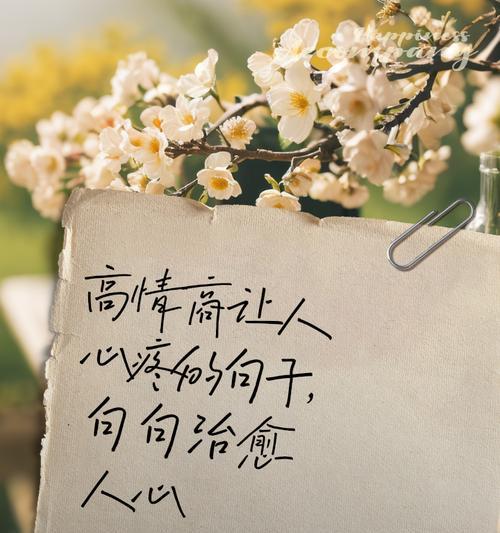 Happiness
company
高情商让人
心疼的句子，
句句治愈
人心